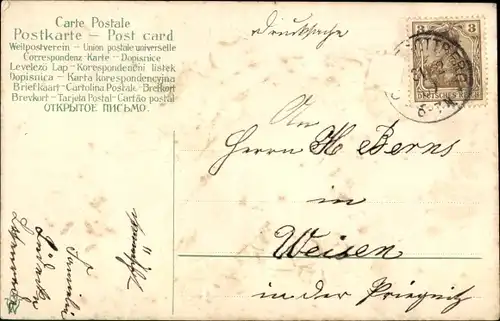 Carte Postale
Postkarte - Post card
Weltpostverein - Union postale universelle
Correspondenz-Karte - Dopisnice
Levelező Lap - Korespondenční lístek
Dopisnica - Karta korespondencyjna
Briefkaart - Cartolina Postale - Brefkort
Brevkort - Tarjeta Postal - Cartão postal
ОТКРЫТОЕ ПИСЬМО.
Drucksache
3 3
An
Herrn H Berns
in
Weisen
in der Priegnitz
Familie